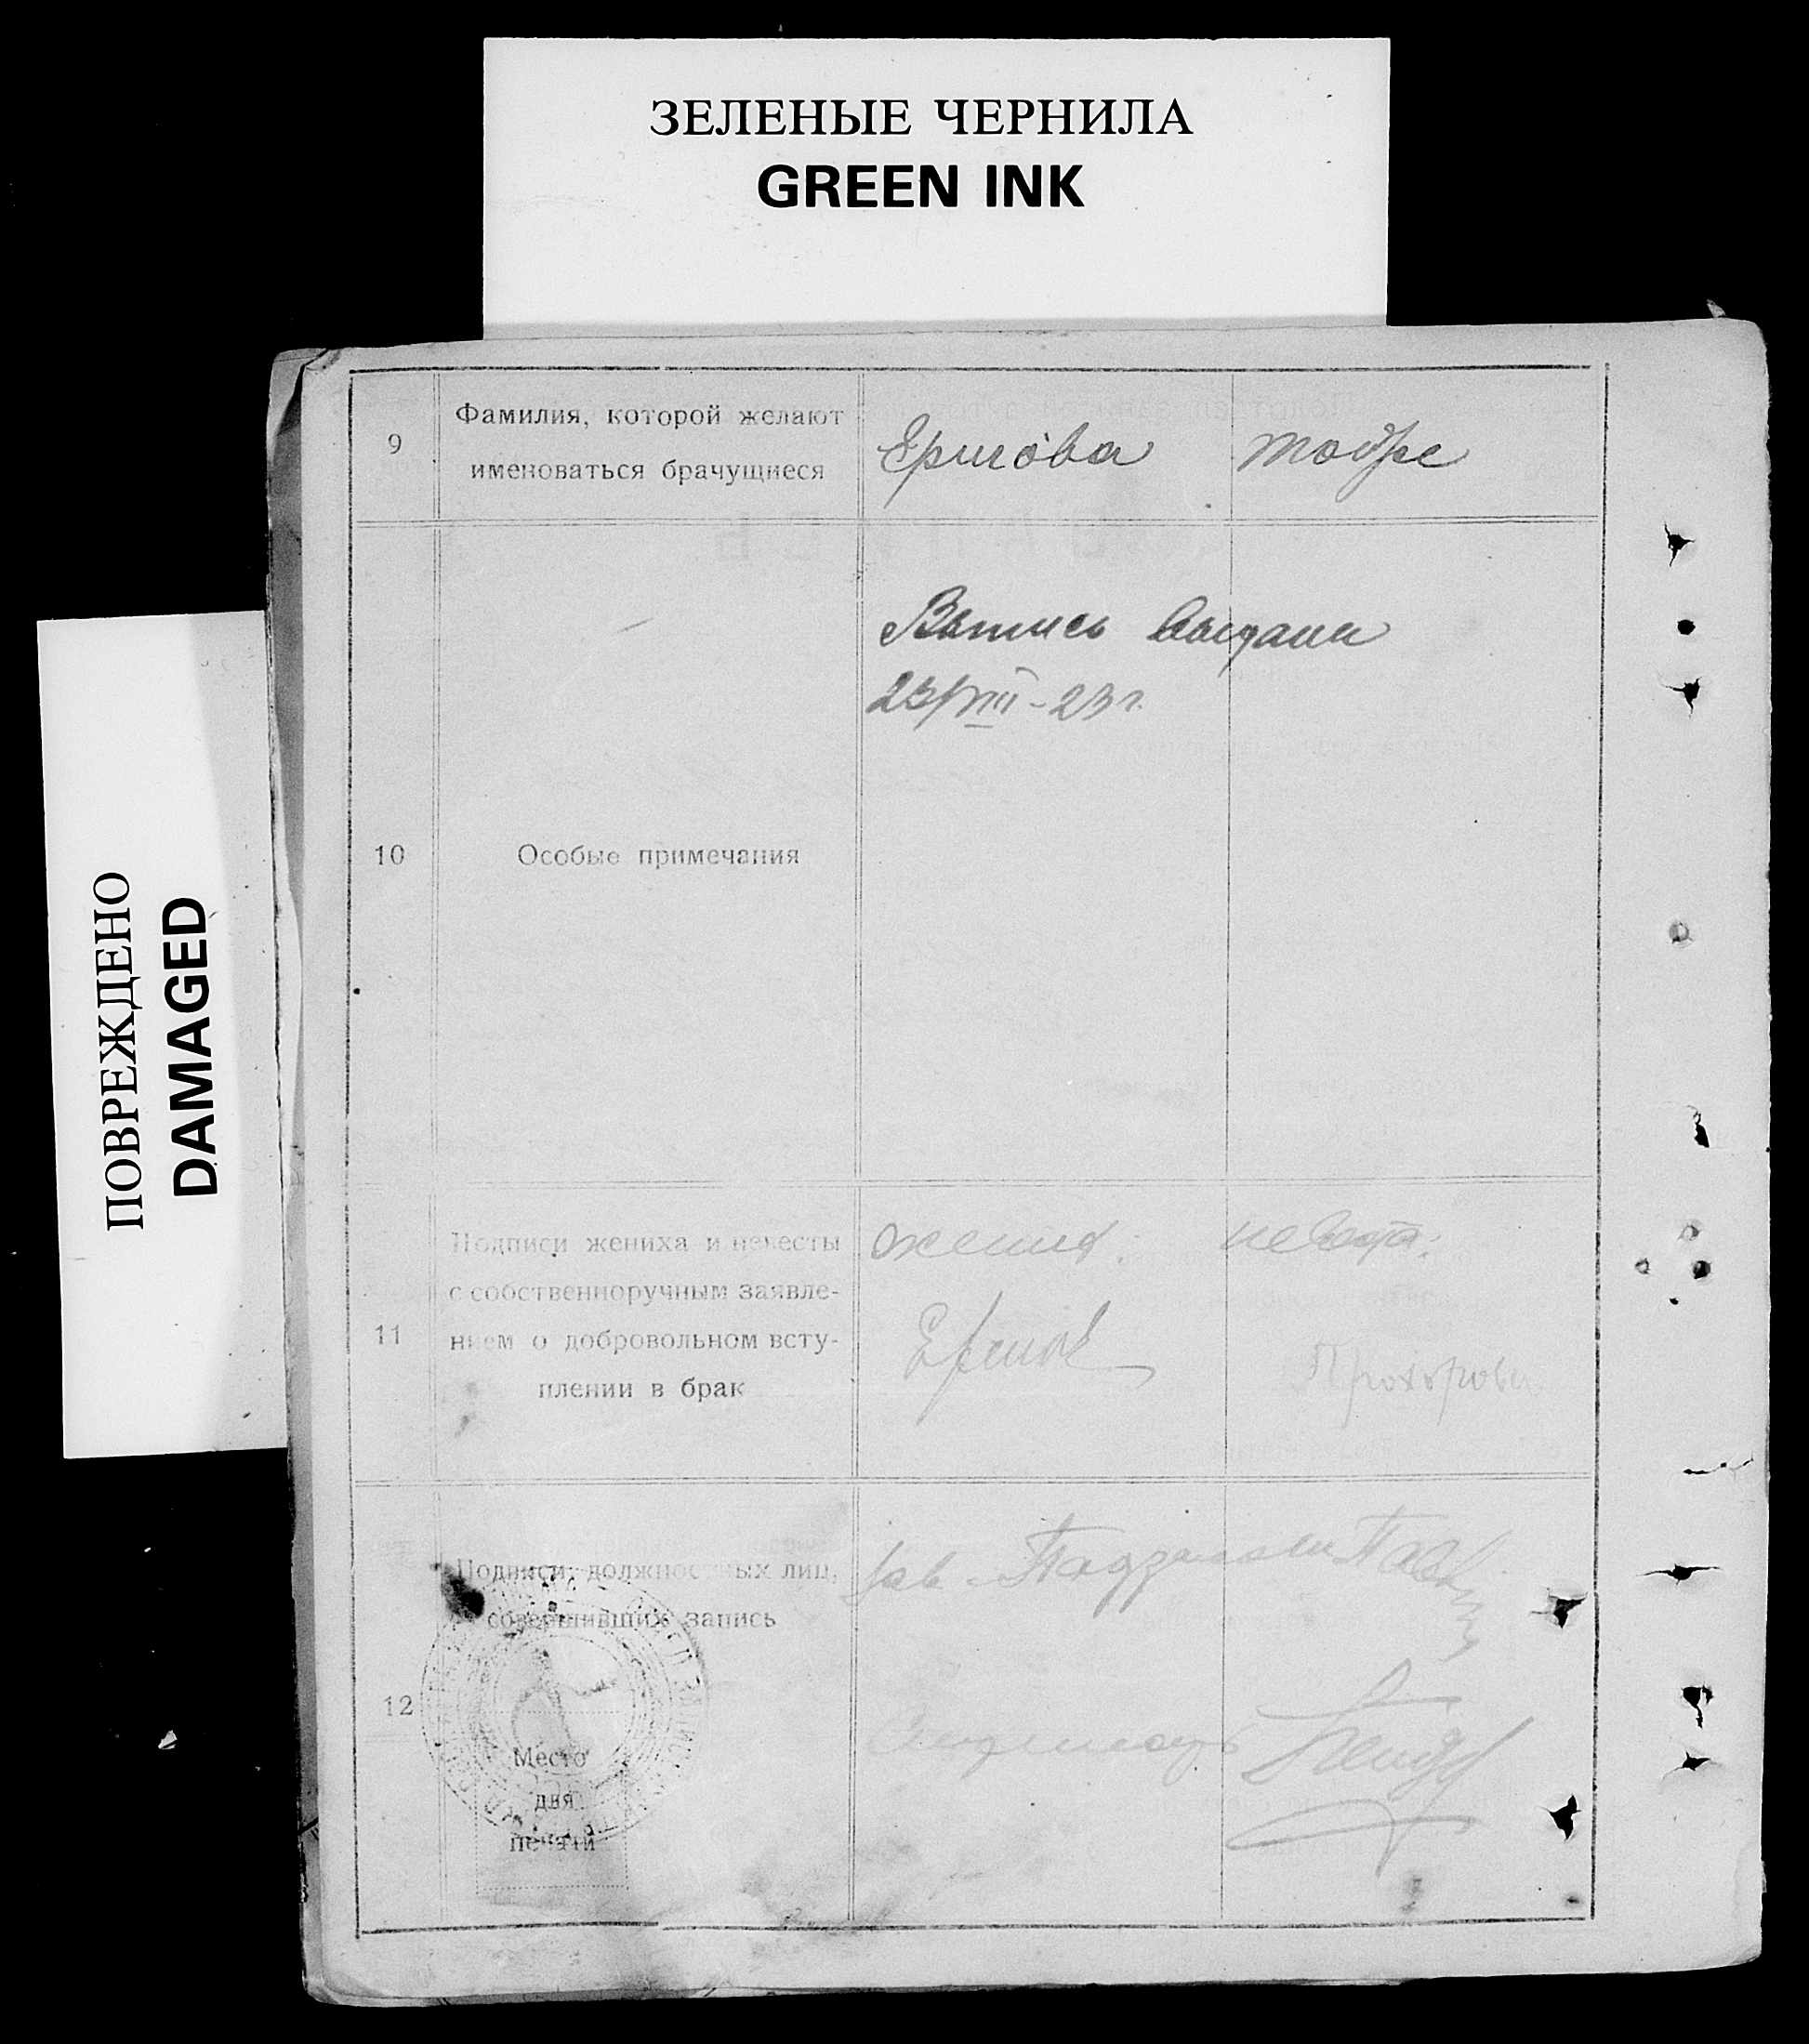 ЗЕЛЕНЫЕ ЧЕРНИЛА
GREEN INK
ПОВРЕЖДЕНО
DAMAGED
9
Фамилия, которой желают
именоваться брачущиеся
Ершова
тоже
10
Особые примечания
Выпись выдана
23/VIII-23 г.
11
Подписи жениха и невесты
с собственноручным заявле-
нием о добровольном всту-
плении в брак
жених:
невеста:
Ершов
Прохорова
12
Подписи должностных лиц,
совершивших запись
Зав.
Место
для
печати